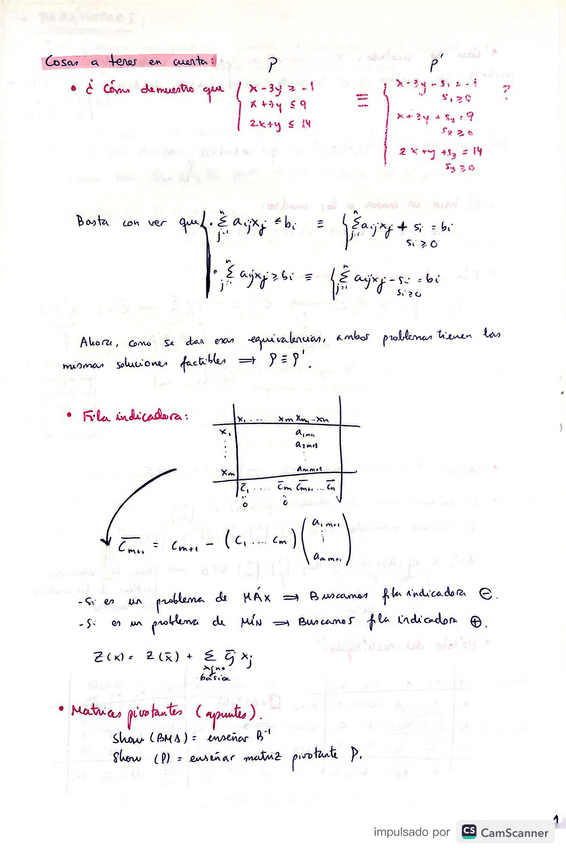 Cosas a tener en cuenta:
P P'
• ¿ Cómo demuestro que { x - 3y ≥ -1 ≡ { x - 3y - s₁ = -1 ?
s₁ ≥ 0
x + 3y ≤ 9 x + 3y + s₂ = 9
s₂ ≥ 0
2x + y ≤ 14 2x + y + s₃ = 14
s₃ ≥ 0
Basta con ver que { • Σ aijxj ≤ bi ≡ { Σ aijxj + si = bi
j=1 n si ≥ 0
• Σ aijxj ≥ bi ≡ { Σ aijxj - si = bi
j=1 n si ≥ 0
Ahora, como se dan esas equivalencias, ambos problemas tienen las
mismas soluciones factibles ⟹ P ≡ P'.
• Fila indicadora:
x₁ .... xm xm+1 ... xn
x₁ a1m+1
a2m+1
xm amm+1
c̄₁ .... c̄m c̄m+1 ... c̄n
0 0
c̄m+1 = cm+1 - (c₁ .... cm) (a1m+1 ⋮ amm+1)
- Si es un problema de MÁX ⟹ Buscamos fila indicadora ⊖.
- Si es un problema de MÍN ⟹ Buscamos fila indicadora ⊕.
Z(x) = Z(x̄) + Σ c̄j xj
xj no
básica
• Matrices pivotantes (apuntes).
Show (BMS) = enseñar B⁻¹
Show (P) = enseñar matriz pivotante P.
1
impulsado por CS CamScanner